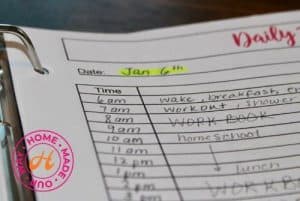 Daily
Date: Jan 6th
Time
6 am wake, breakfast,
7 am workout, shower
8 am WORK BOOK
9 am
10 am homeschool
11 am
12 pm
1 pm lunch
2 pm
3 pm WORK B
HOME · MADE · OUR WAY
H